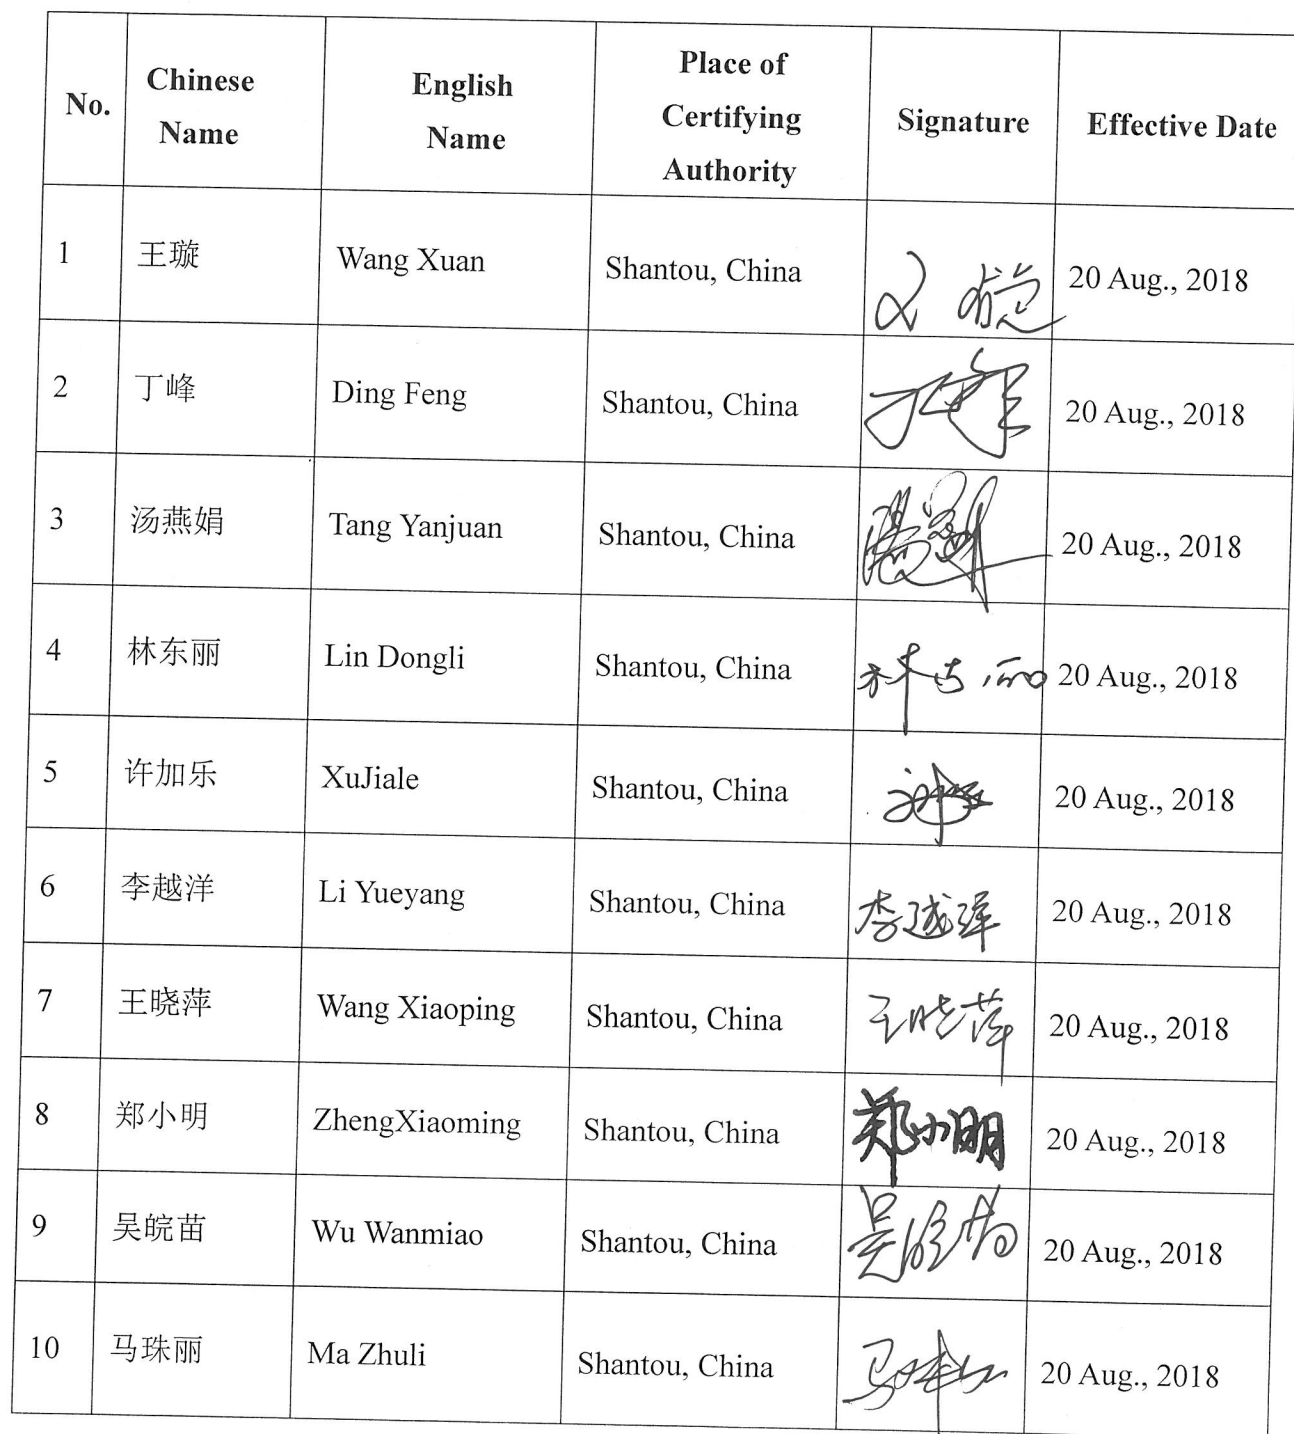 No. Chinese Name English Name Place of Certifying Authority Signature Effective Date
1 王璇 Wang Xuan Shantou, China 20 Aug., 2018
2 丁峰 Ding Feng Shantou, China 丁峰 20 Aug., 2018
3 汤燕娟 Tang Yanjuan Shantou, China 20 Aug., 2018
4 林东丽 Lin Dongli Shantou, China 林东丽 20 Aug., 2018
5 许加乐 XuJiale Shantou, China 20 Aug., 2018
6 李越洋 Li Yueyang Shantou, China 李越洋 20 Aug., 2018
7 王晓萍 Wang Xiaoping Shantou, China 王晓萍 20 Aug., 2018
8 郑小明 ZhengXiaoming Shantou, China 郑小明 20 Aug., 2018
9 吴皖苗 Wu Wanmiao Shantou, China 吴皖苗 20 Aug., 2018
10 马珠丽 Ma Zhuli Shantou, China 20 Aug., 2018